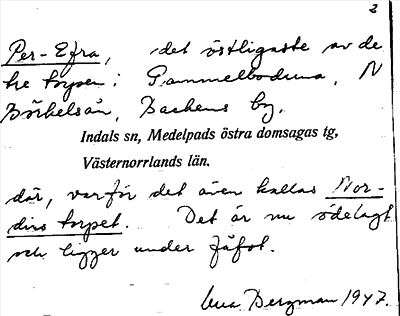 2
Per-Efra, det östligaste av de
tre torpen i Gammelbodarna, N
Börkelsån, Backens by.
Indals sn, Medelpads östra domsagas tg,
Västernorrlands län.
där, varför det även kallas Nor-
dins torpet. Det är nu ödelagt
och ligger under Fäfot.
Bergman 1947.